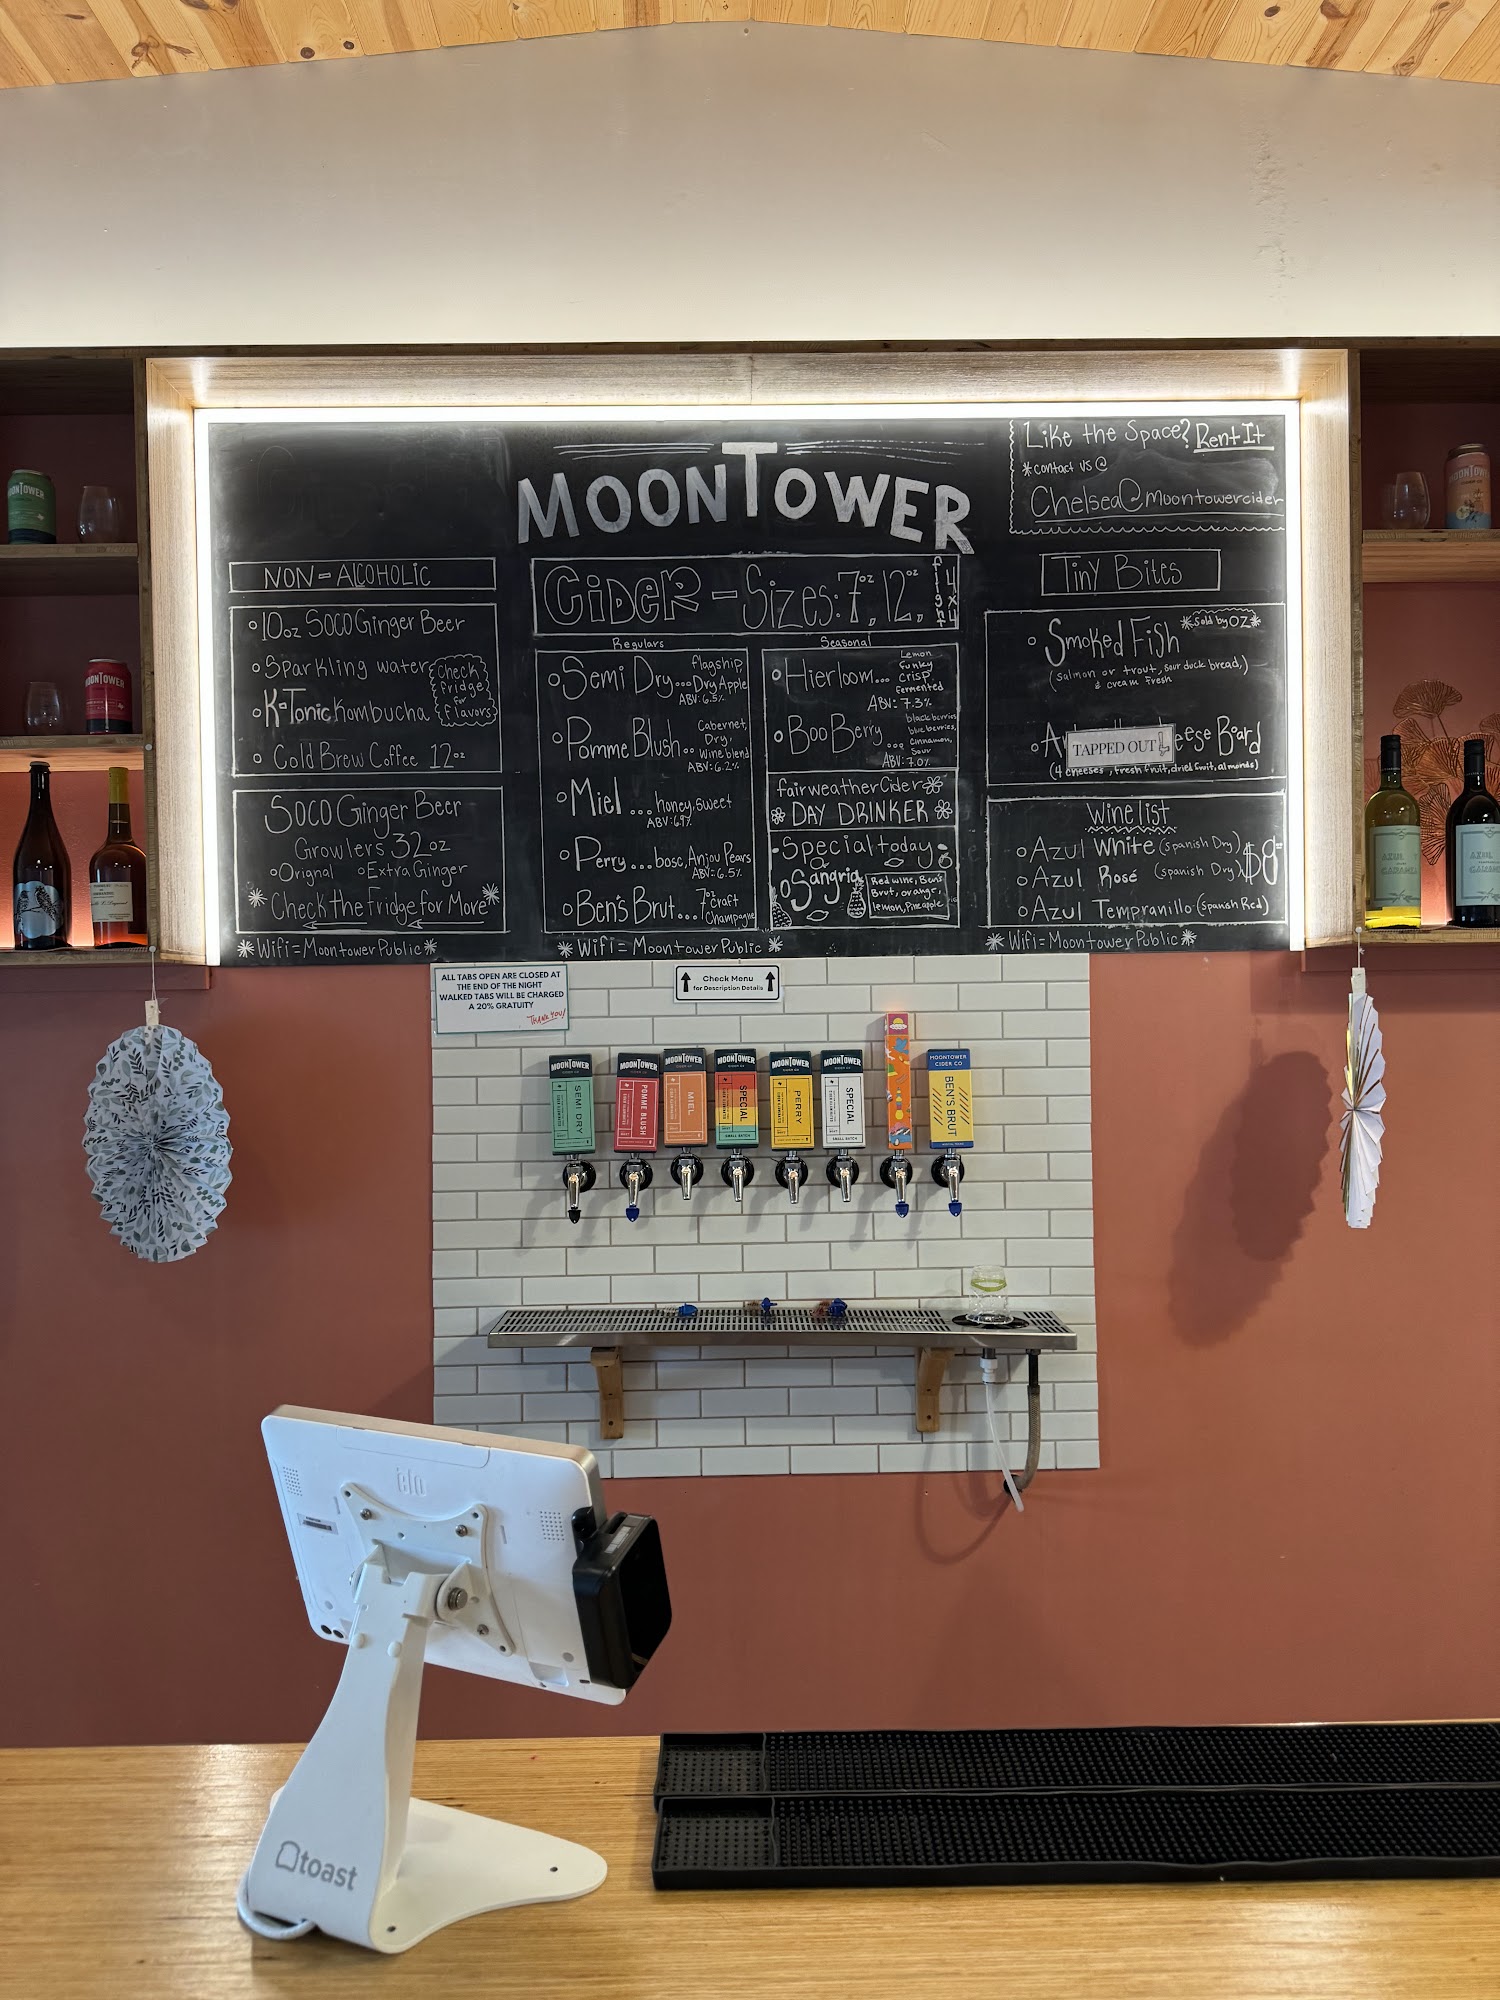 Like the Space? Rent It
*contact us @
Chelsea@moontowercider
MOONTOWER
NON-ALCOHOLIC
10oz SOCO Ginger Beer
Sparkling water
K-Tonic Kombucha
Check
fridge
for
flavors
Cold Brew Coffee 12oz
SOCO Ginger Beer
Growlers 32oz
Orignal Extra Ginger
*Check the Fridge for More*
*Wifi=MoontowerPublic*
CIDER-Sizes: 7oz, 12oz, flight 4x4
Regulars
Semi Dry...Dry Apple
flagship
ABV:6.5%
Pomme Blush..
Cabernet,
Dry,
Wine blend
ABV:6.2%
Miel ...honey, sweet
ABV:6.9%
Perry...bosc, Anjou Pears
ABV=6.5%
Ben's Brut...
7oz
craft
Champagne
Seasonal
Hierloom...
Lemon
funky
crisp
fermented
ABV=7.3%
BooBerry ...
blackberries
blueberries,
cinnamon,
sour
ABV:7.0%
fairweatherCider
DAY DRINKER
Special today
Sangria
Red wine, Ben's
Brut, orange,
lemon, Pineapple
*Wifi=MoontowerPublic*
TiNY BiTES
Smoked Fish *Sold by OZ*
(salmon or trout, sour duck bread,)
& cream fresh
TAPPED OUT
eese Board
(4 cheeses, fresh fruit, dried fruit, almonds)
Wine list
Azul White (Spanish Dry)
Azul Rosé (Spanish Dry)
$8
Azul Tempranillo (Spanish Red)
*Wifi=MoontowerPublic*
MOONTOWER
MOONTOWER
MOONTOWER
ALL TABS OPEN ARE CLOSED AT
THE END OF THE NIGHT
WALKED TABS WILL BE CHARGED
A 20% GRATUITY
THANK YOU!
Check Menu
for Description Details
MOONTOWER
SEMI DRY
MOONTOWER
POMME BLUSH
MOONTOWER
MIEL
MOONTOWER
SPECIAL
SMALL BATCH
MOONTOWER
PERRY
MOONTOWER
SPECIAL
SMALL BATCH
MOONTOWER
CIDER CO
BEN'S BRUT
elo
toast